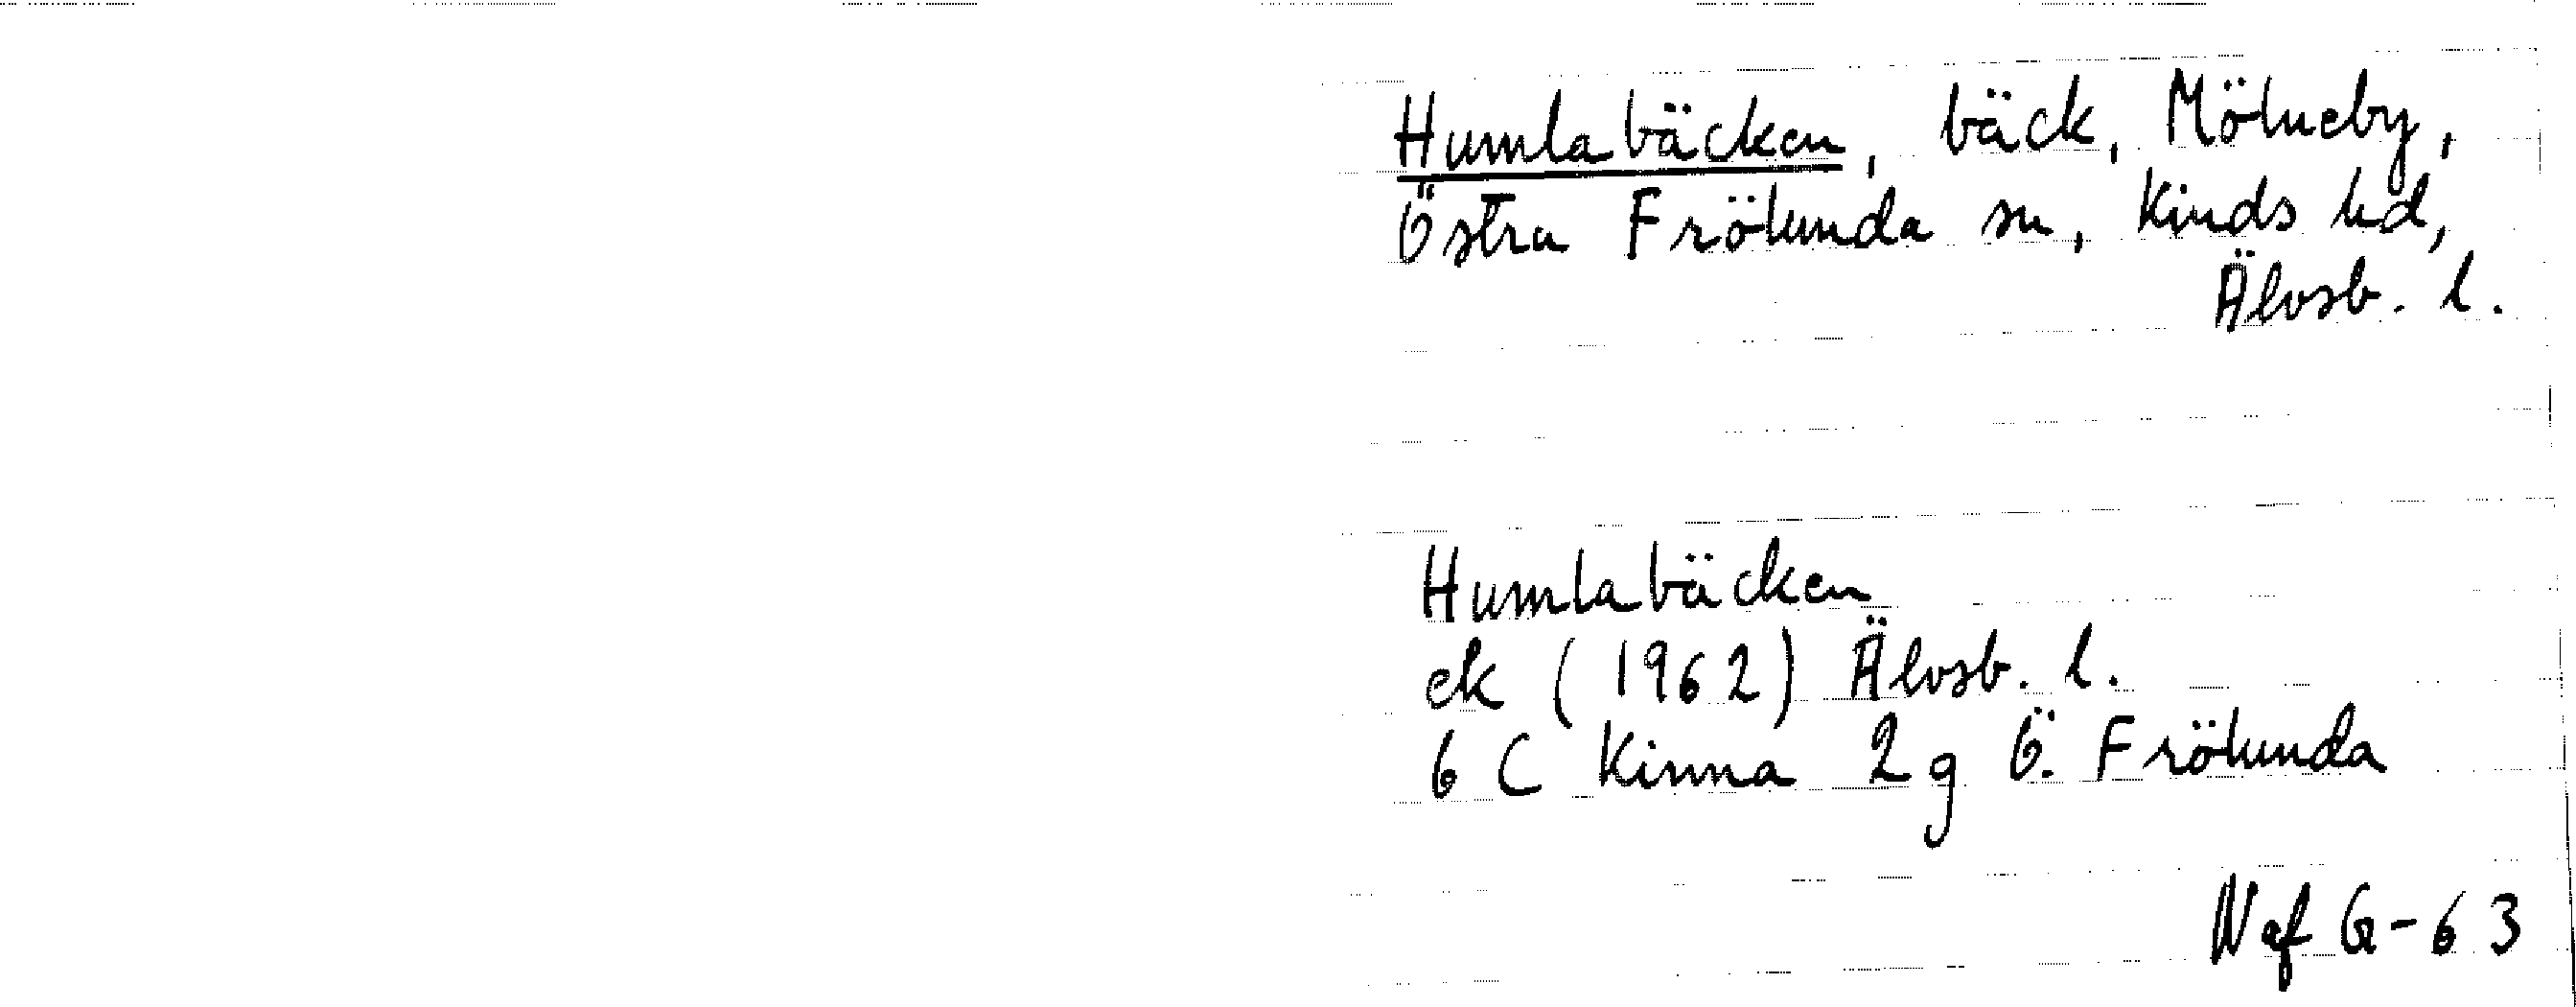 Humlabäcken, bäck, Mölneby,
Östra Frölunda sn, Kinds hd,
Älvsb. l.
Humlabäcken
ek (1962) Älvsb. l.
6 C Kinna 2g Ö. Frölunda
Naf G-63